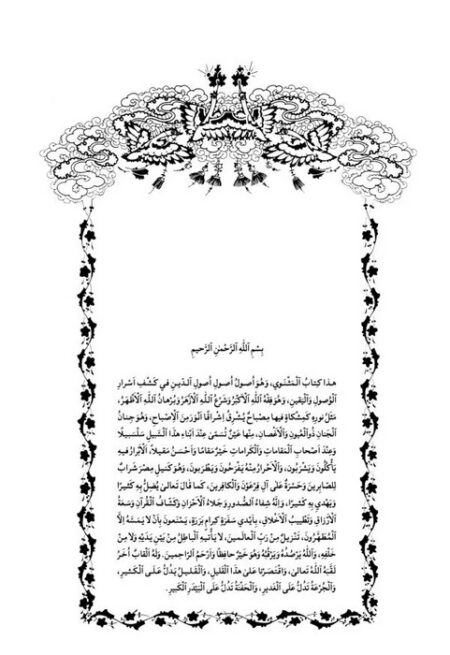 بِسْمِ اللَّهِ الرَّحْمٰنِ الرَّحيمِ
هذا كِتابُ الْمَثْنَوي، وَهُوَ أصولُ أصولِ أصولِ الدّينِ في كَشْفِ أسْرارِ
الْوُصولِ وَالْيَقينِ، وَهُوَ فِقْهُ اللَّهِ الْأكْبَرُ وَشَرْعُ اللَّهِ الْأزْهَرُ وَبُرْهانُ اللَّهِ الْأظْهَرُ،
مَثَلُ نورِهِ كَمِشْكاةٍ فيها مِصْباحٌ يُشْرِقُ إشْراقًا أنْوَرَ مِنَ الْإصْباحِ، وَهُوَ جِنانُ
الْجَنانِ ذُو الْعُيونِ وَالْأغْصانِ، مِنْها عَيْنٌ تُسَمّىٰ عِنْدَ أبْناءِ هذَا السَّبيلِ سَلْسَبيلًا
وَعِنْدَ أصْحابِ الْمَقاماتِ وَالْكَراماتِ خَيْرٌ مَقامًا وَأحْسَنُ مَقيلًا، الْأبْرارُ فيهِ
يَأْكُلُونَ وَيَشْرَبُونَ، وَالْأحْرارُ مِنْهُ يَفْرَحُونَ وَيَطْرَبُونَ، وَهُوَ كَنيلِ مِصْرَ شَرابٌ
لِلصّابِرينَ وَحَسْرَةٌ عَلىٰ آلِ فِرْعَوْنَ وَالْكافِرينَ، كَما قالَ تَعالىٰ يُضِلُّ بِهِ كَثيرًا
وَيَهْدي بِهِ كَثيرًا، وَإنَّهُ شِفاءُ الصُّدورِ وَجَلاءُ الْأحْزانِ وَكَشّافُ الْقُرْآنِ وَسَعَةُ
الْأرْزاقِ وَتَطْييبُ الْأخْلاقِ، بِأيْدي سَفَرَةٍ كِرامٍ بَرَرَةٍ، يَمْنَعونَ بِأنْ لا يَمَسَّهُ إلَّا
الْمُطَهَّرُونَ، تَنْزيلٌ مِنْ رَبِّ الْعالَمينَ، لا يَأْتيهِ الْباطِلُ مِنْ بَيْنِ يَدَيْهِ وَلا مِنْ
خَلْفِهِ، وَاللَّهُ يَرْصُدُهُ وَيَرْقُبُهُ وَهُوَ خَيْرٌ حافِظًا وَأرْحَمُ الرّاحِمينَ. وَلَهُ ألْقابٌ أُخَرُ
لَقَّبَهُ اللَّهُ تَعالىٰ، وَاقْتَصَرْنا عَلىٰ هذَا الْقَليلِ، وَالْقَليلُ يَدُلُّ عَلَى الْكَثيرِ،
وَالْجُرْعَةُ تَدُلُّ عَلَى الْغَديرِ، وَالْحَفْنَةُ تَدُلُّ عَلَى الْبَيْدَرِ الْكَبيرِ.